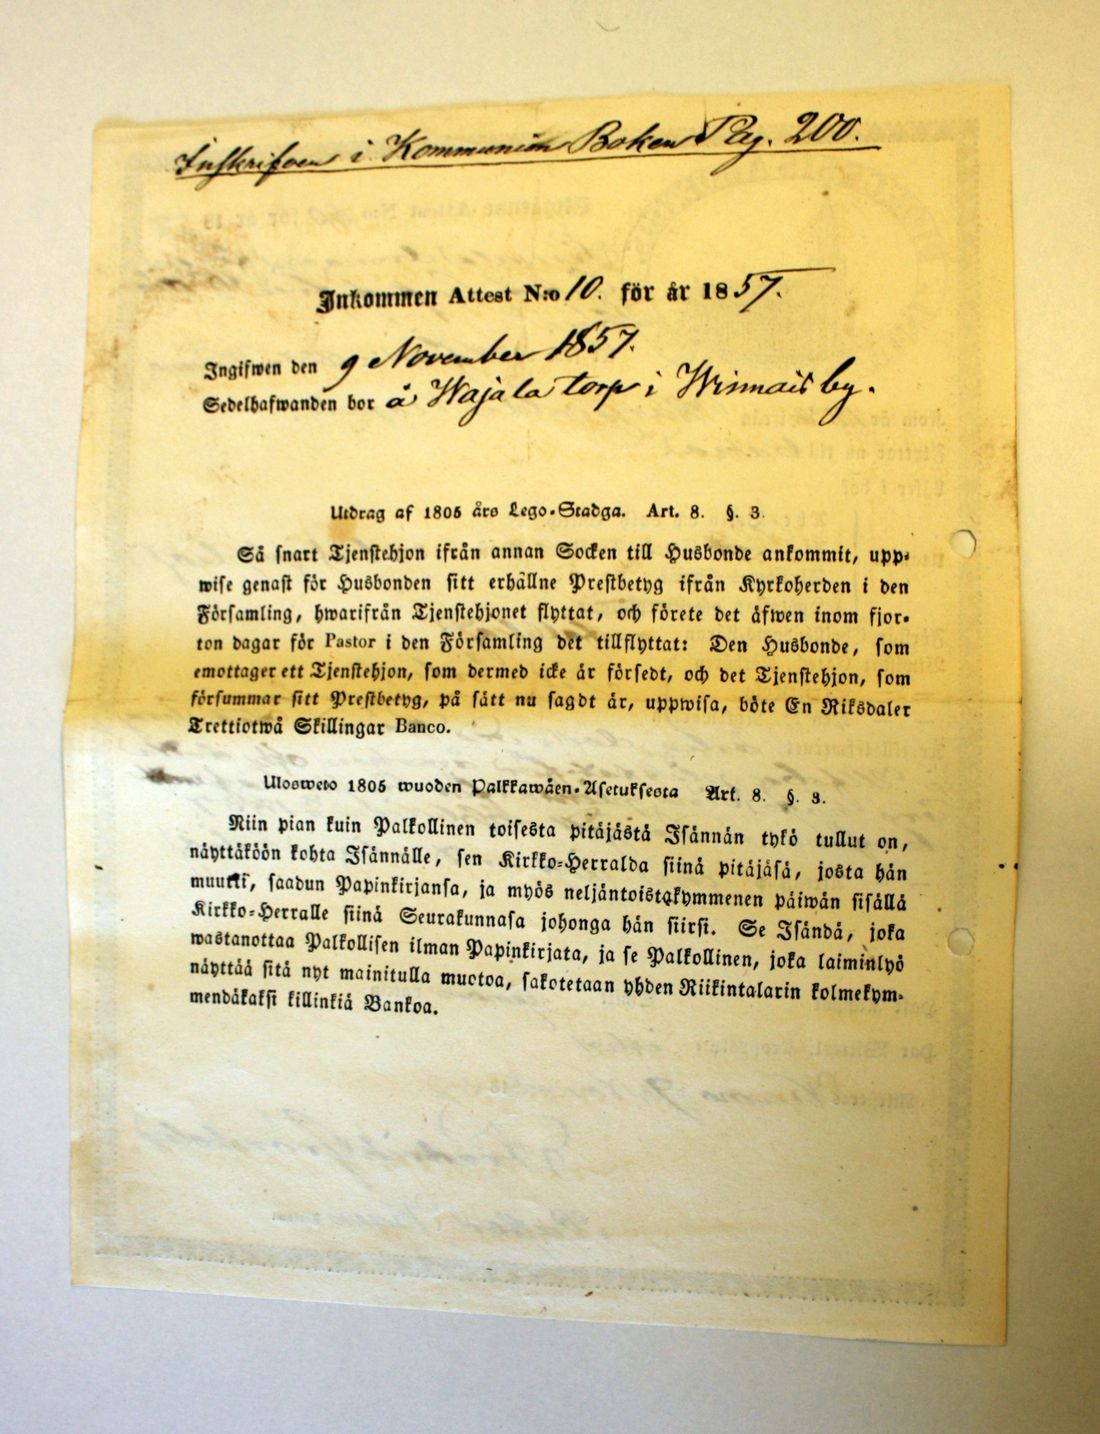 Inskrifven i Kommunion Boken Pag. 200.
Inkommen Attest N:o 10. för år 1857.
Ingifwen den 9 November 1857.
Sedelhafwanden bor å Wajala torp i Wirmais by.
Utdrag af 1805 års Lego-Stadga. Art. 8. §. 3.
Så snart Tjenstehjon ifrån annan Socken till Husbonde ankommit, upp-
wise genast för Husbonden sitt erhållne Prestbetyg ifrån Kyrkoherden i den
Församling, hwarifrån Tjenstehjonet flyttat, och förete det äfwen inom fjor-
ton dagar för Pastor i den Församling det tillflyttat: Den Husbonde, som
emottager ett Tjenstehjon, som dermed icke är försedt, och det Tjenstehjon, som
försummar sitt Prestbetyg, på sätt nu sagdt är, uppwisa, böte En Riksdaler
Trettiotwå Skillingar Banco.
Ulosweto 1805 wuoden Palkkawäen-Asetuksesta Art. 8. §. 3.
Niin pian kuin Palkollinen toisesta pitäjästä Isännän tykö tullut on,
näyttäköön kohta Isännälle, sen Kirkko-Herralda siinä pitäjäsä, josta hän
muutti, saadun Papinkirjansa, ja myös neljäntoistakymmenen päiwän sisällä
Kirkko-Herralle siinä Seurakunnasa johonga hän siirsi. Se Isändä, joka
wastanottaa Palkollisen ilman Papinkirjata, ja se Palkollinen, joka laiminlyö
näyttää sitä nyt mainitulla muotoa, sakotetaan yhden Riikintalarin kolmekym-
mendäkaksi killinkiä Bankoa.